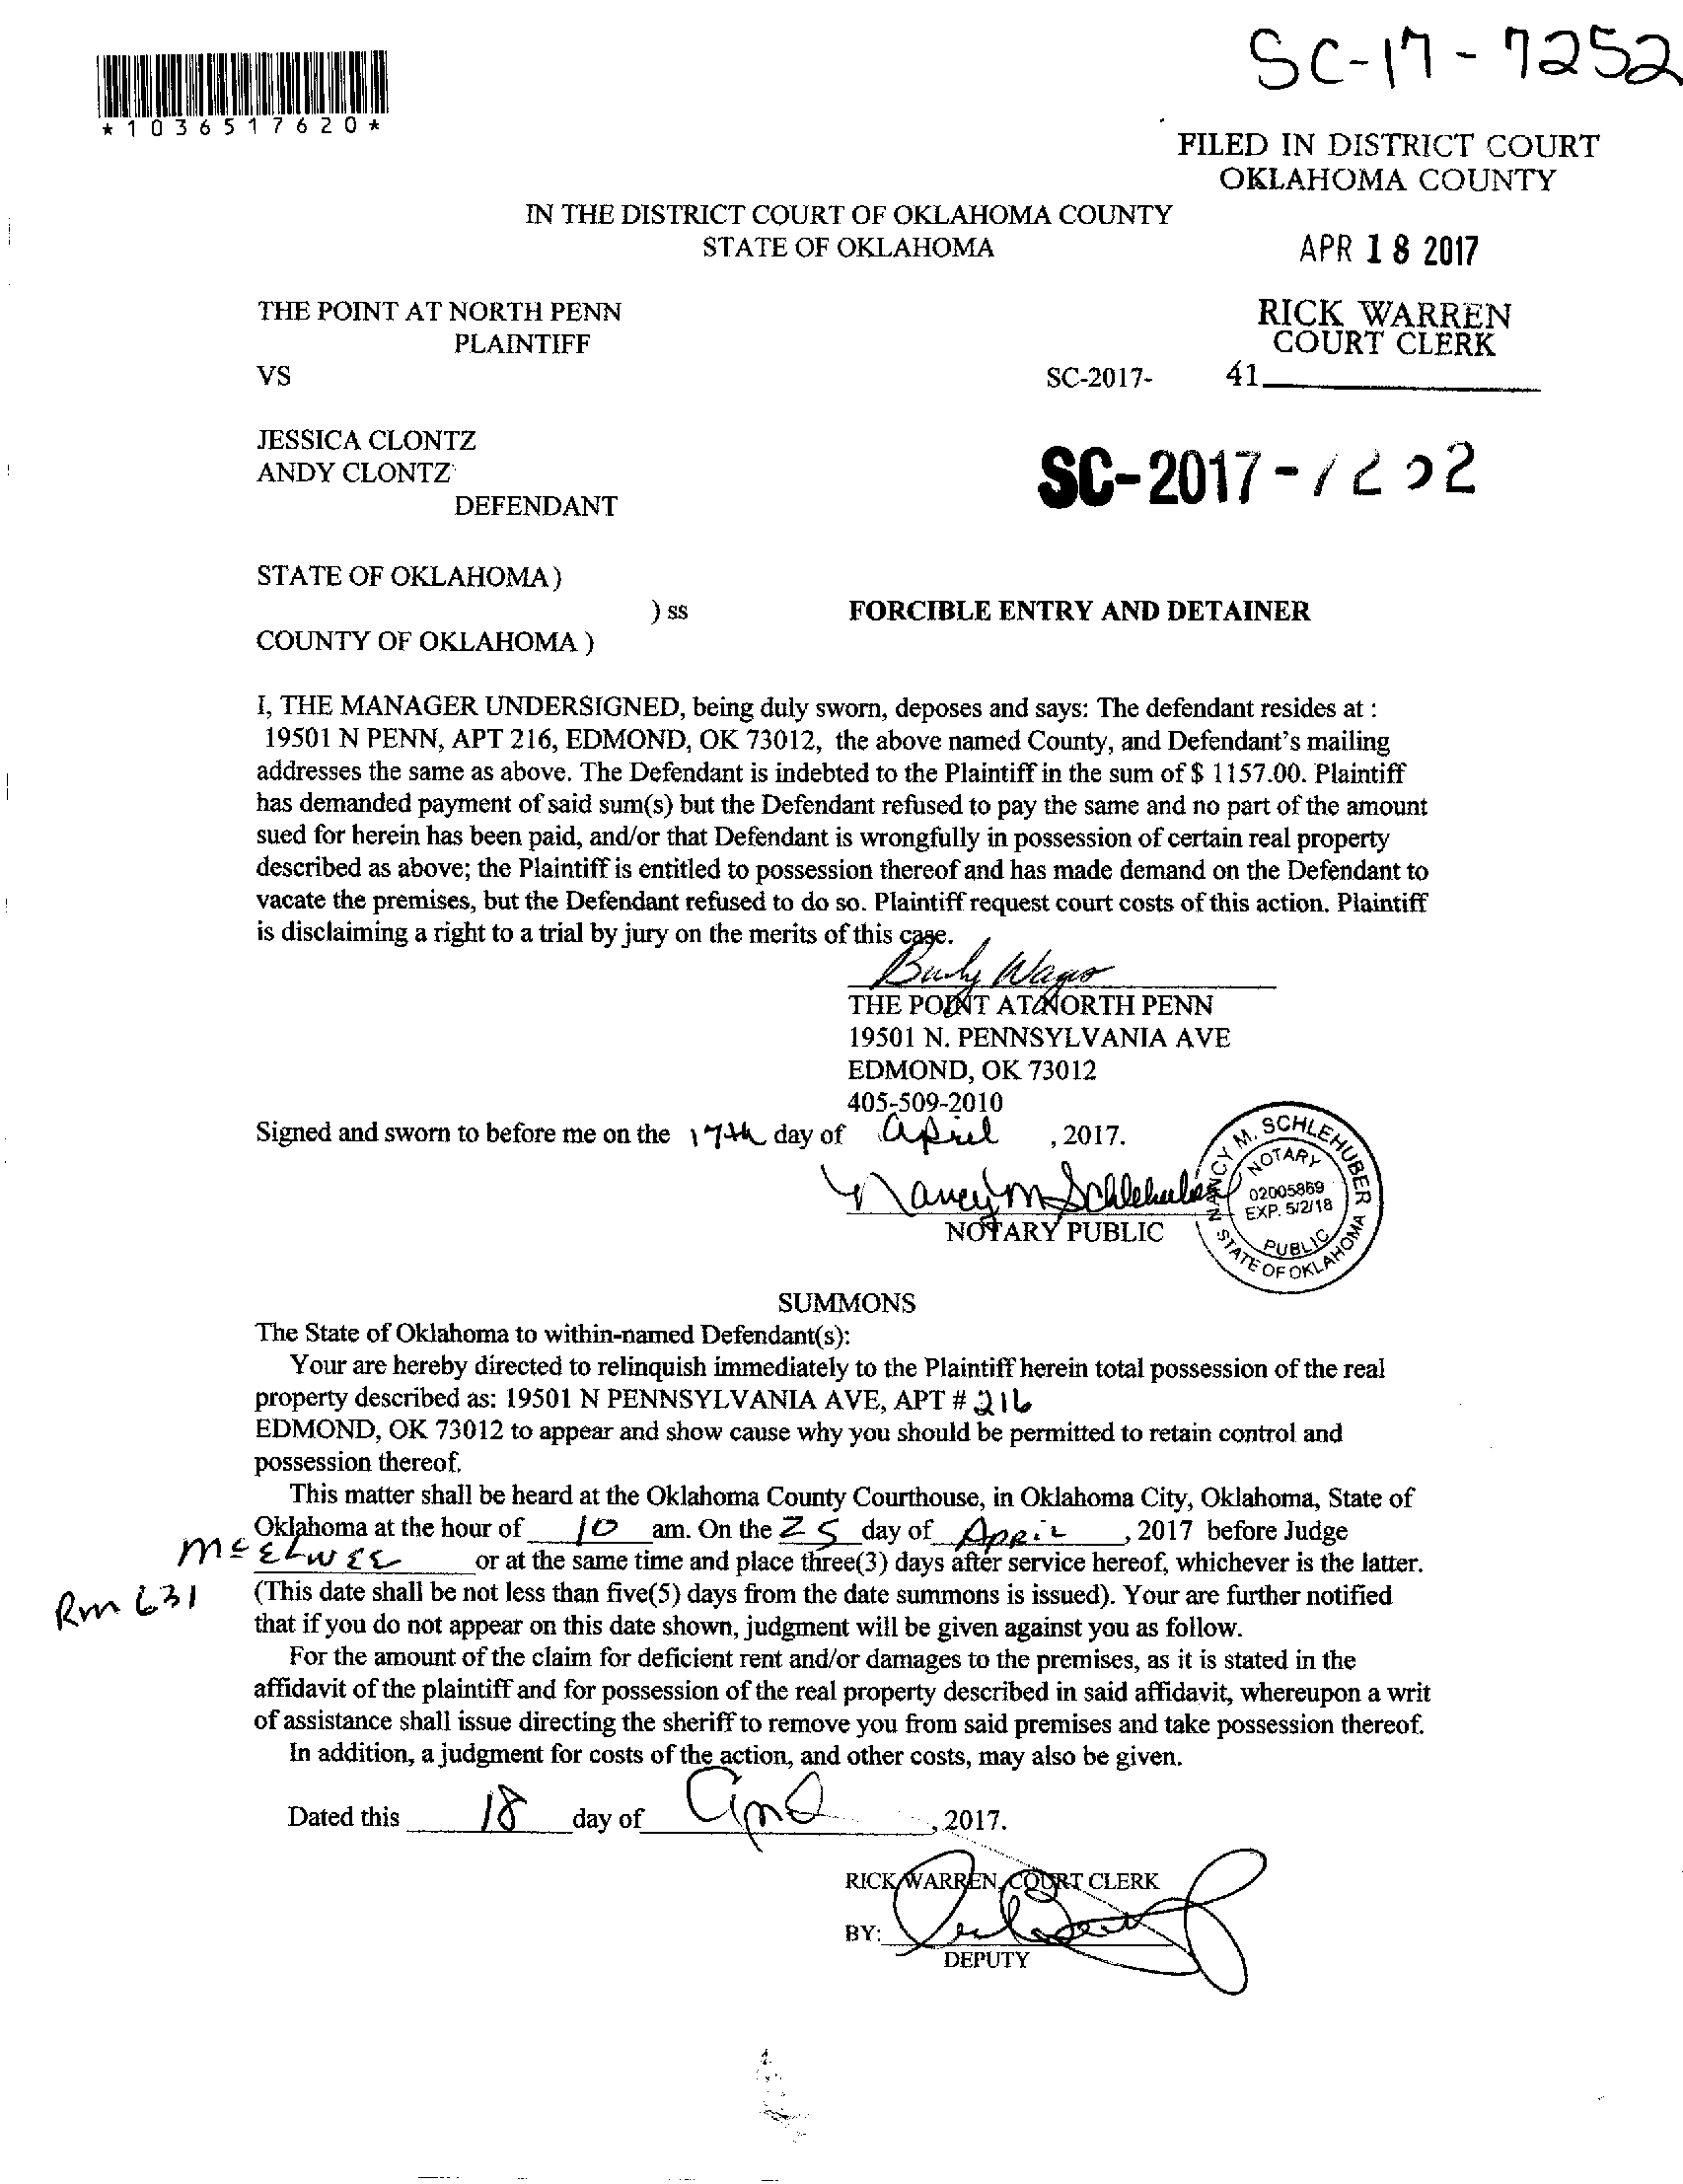 SC-17-7252
*1036517620*
FILED IN DISTRICT COURT
OKLAHOMA COUNTY
IN THE DISTRICT COURT OF OKLAHOMA COUNTY
STATE OF OKLAHOMA
APR 18 2017
THE POINT AT NORTH PENN
PLAINTIFF
RICK WARREN
COURT CLERK
VS
SC-2017- 41
JESSICA CLONTZ
ANDY CLONTZ
DEFENDANT
SC-2017-
STATE OF OKLAHOMA)
) ss FORCIBLE ENTRY AND DETAINER
COUNTY OF OKLAHOMA )
I, THE MANAGER UNDERSIGNED, being duly sworn, deposes and says: The defendant resides at :
19501 N PENN, APT 216, EDMOND, OK 73012, the above named County, and Defendant's mailing
addresses the same as above. The Defendant is indebted to the Plaintiff in the sum of $ 1157.00. Plaintiff
has demanded payment of said sum(s) but the Defendant refused to pay the same and no part of the amount
sued for herein has been paid, and/or that Defendant is wrongfully in possession of certain real property
described as above; the Plaintiff is entitled to possession thereof and has made demand on the Defendant to
vacate the premises, but the Defendant refused to do so. Plaintiff request court costs of this action. Plaintiff
is disclaiming a right to a trial by jury on the merits of this case.
THE POINT AT NORTH PENN
19501 N. PENNSYLVANIA AVE
EDMOND, OK 73012
405-509-2010
Signed and sworn to before me on the 17th day of April , 2017.
Nancy M Schlehuber
NOTARY PUBLIC
NANCY M. SCHLEHUBER
NOTARY
02005869
EXP. 5/2/18
PUBLIC
STATE OF OKLAHOMA
SUMMONS
The State of Oklahoma to within-named Defendant(s):
Your are hereby directed to relinquish immediately to the Plaintiff herein total possession of the real
property described as: 19501 N PENNSYLVANIA AVE, APT # 216
EDMOND, OK 73012 to appear and show cause why you should be permitted to retain control and
possession thereof.
This matter shall be heard at the Oklahoma County Courthouse, in Oklahoma City, Oklahoma, State of
Oklahoma at the hour of 10 am. On the 25 day of April , 2017 before Judge
McElwee or at the same time and place three(3) days after service hereof, whichever is the latter.
Rm 631 (This date shall be not less than five(5) days from the date summons is issued). Your are further notified
that if you do not appear on this date shown, judgment will be given against you as follow.
For the amount of the claim for deficient rent and/or damages to the premises, as it is stated in the
affidavit of the plaintiff and for possession of the real property described in said affidavit, whereupon a writ
of assistance shall issue directing the sheriff to remove you from said premises and take possession thereof.
In addition, a judgment for costs of the action, and other costs, may also be given.
Dated this 18 day of , 2017.
RICK WARREN, COURT CLERK
BY:
DEPUTY